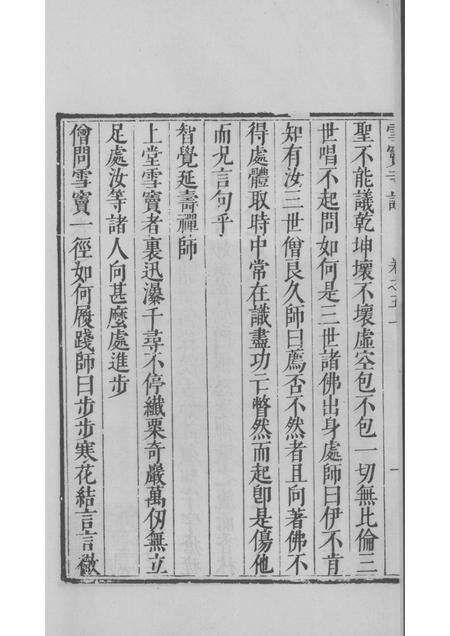 雪竇寺誌　卷之五　一
聖不能議乾坤壞不壞虛空包不包一切無比倫三
世唱不起問如何是三世諸佛出身處師曰伊不肯
知有汝三世僧良久師曰薦否不然者且向著佛不
得處體取時中常在識盡功亡瞥然而起卽是傷他
而况言句乎
智覺延壽禪師
上堂雪竇者裏迅瀑千尋不停纖粟奇巖萬仞無立
足處汝等諸人向甚麼處進步
僧問雪竇一徑如何履踐師曰步步寒花結言言徹